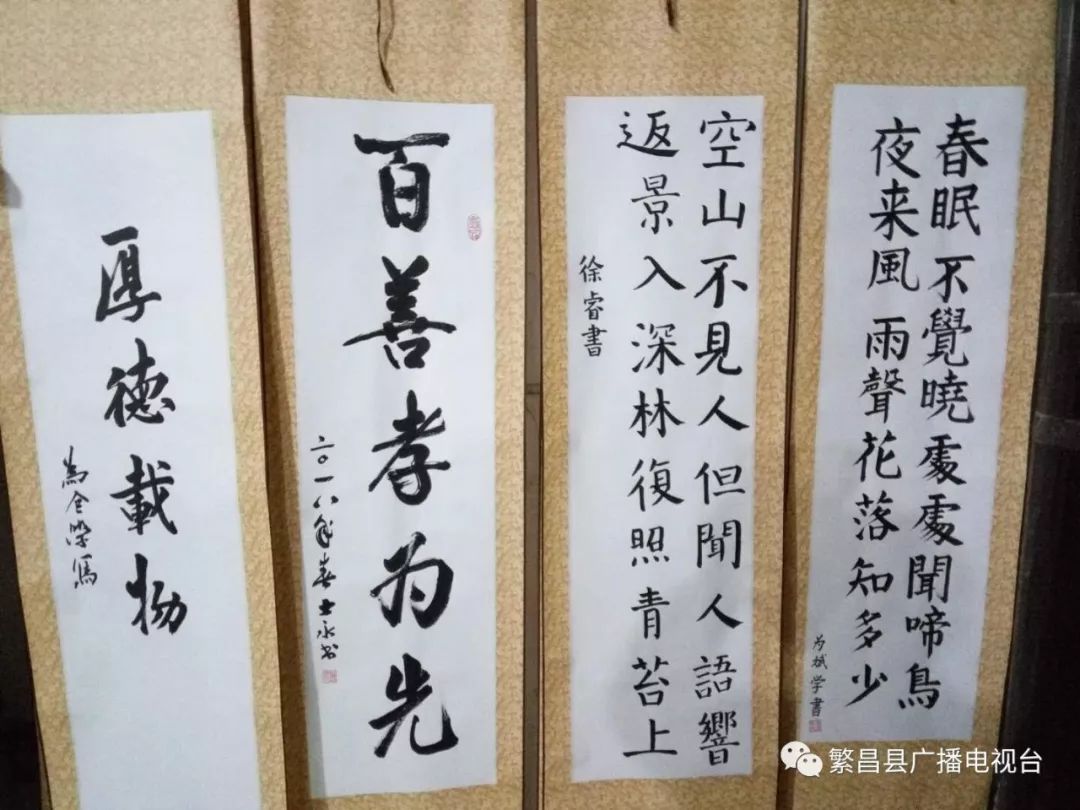 春眠不覺曉處處聞啼鳥
夜来風雨聲花落知多少
为斌学書
空山不見人但聞人語響
返景入深林復照青苔上
徐睿書
百善孝为先
二〇一八年春士永书
厚德載物
繁昌县广播电视台